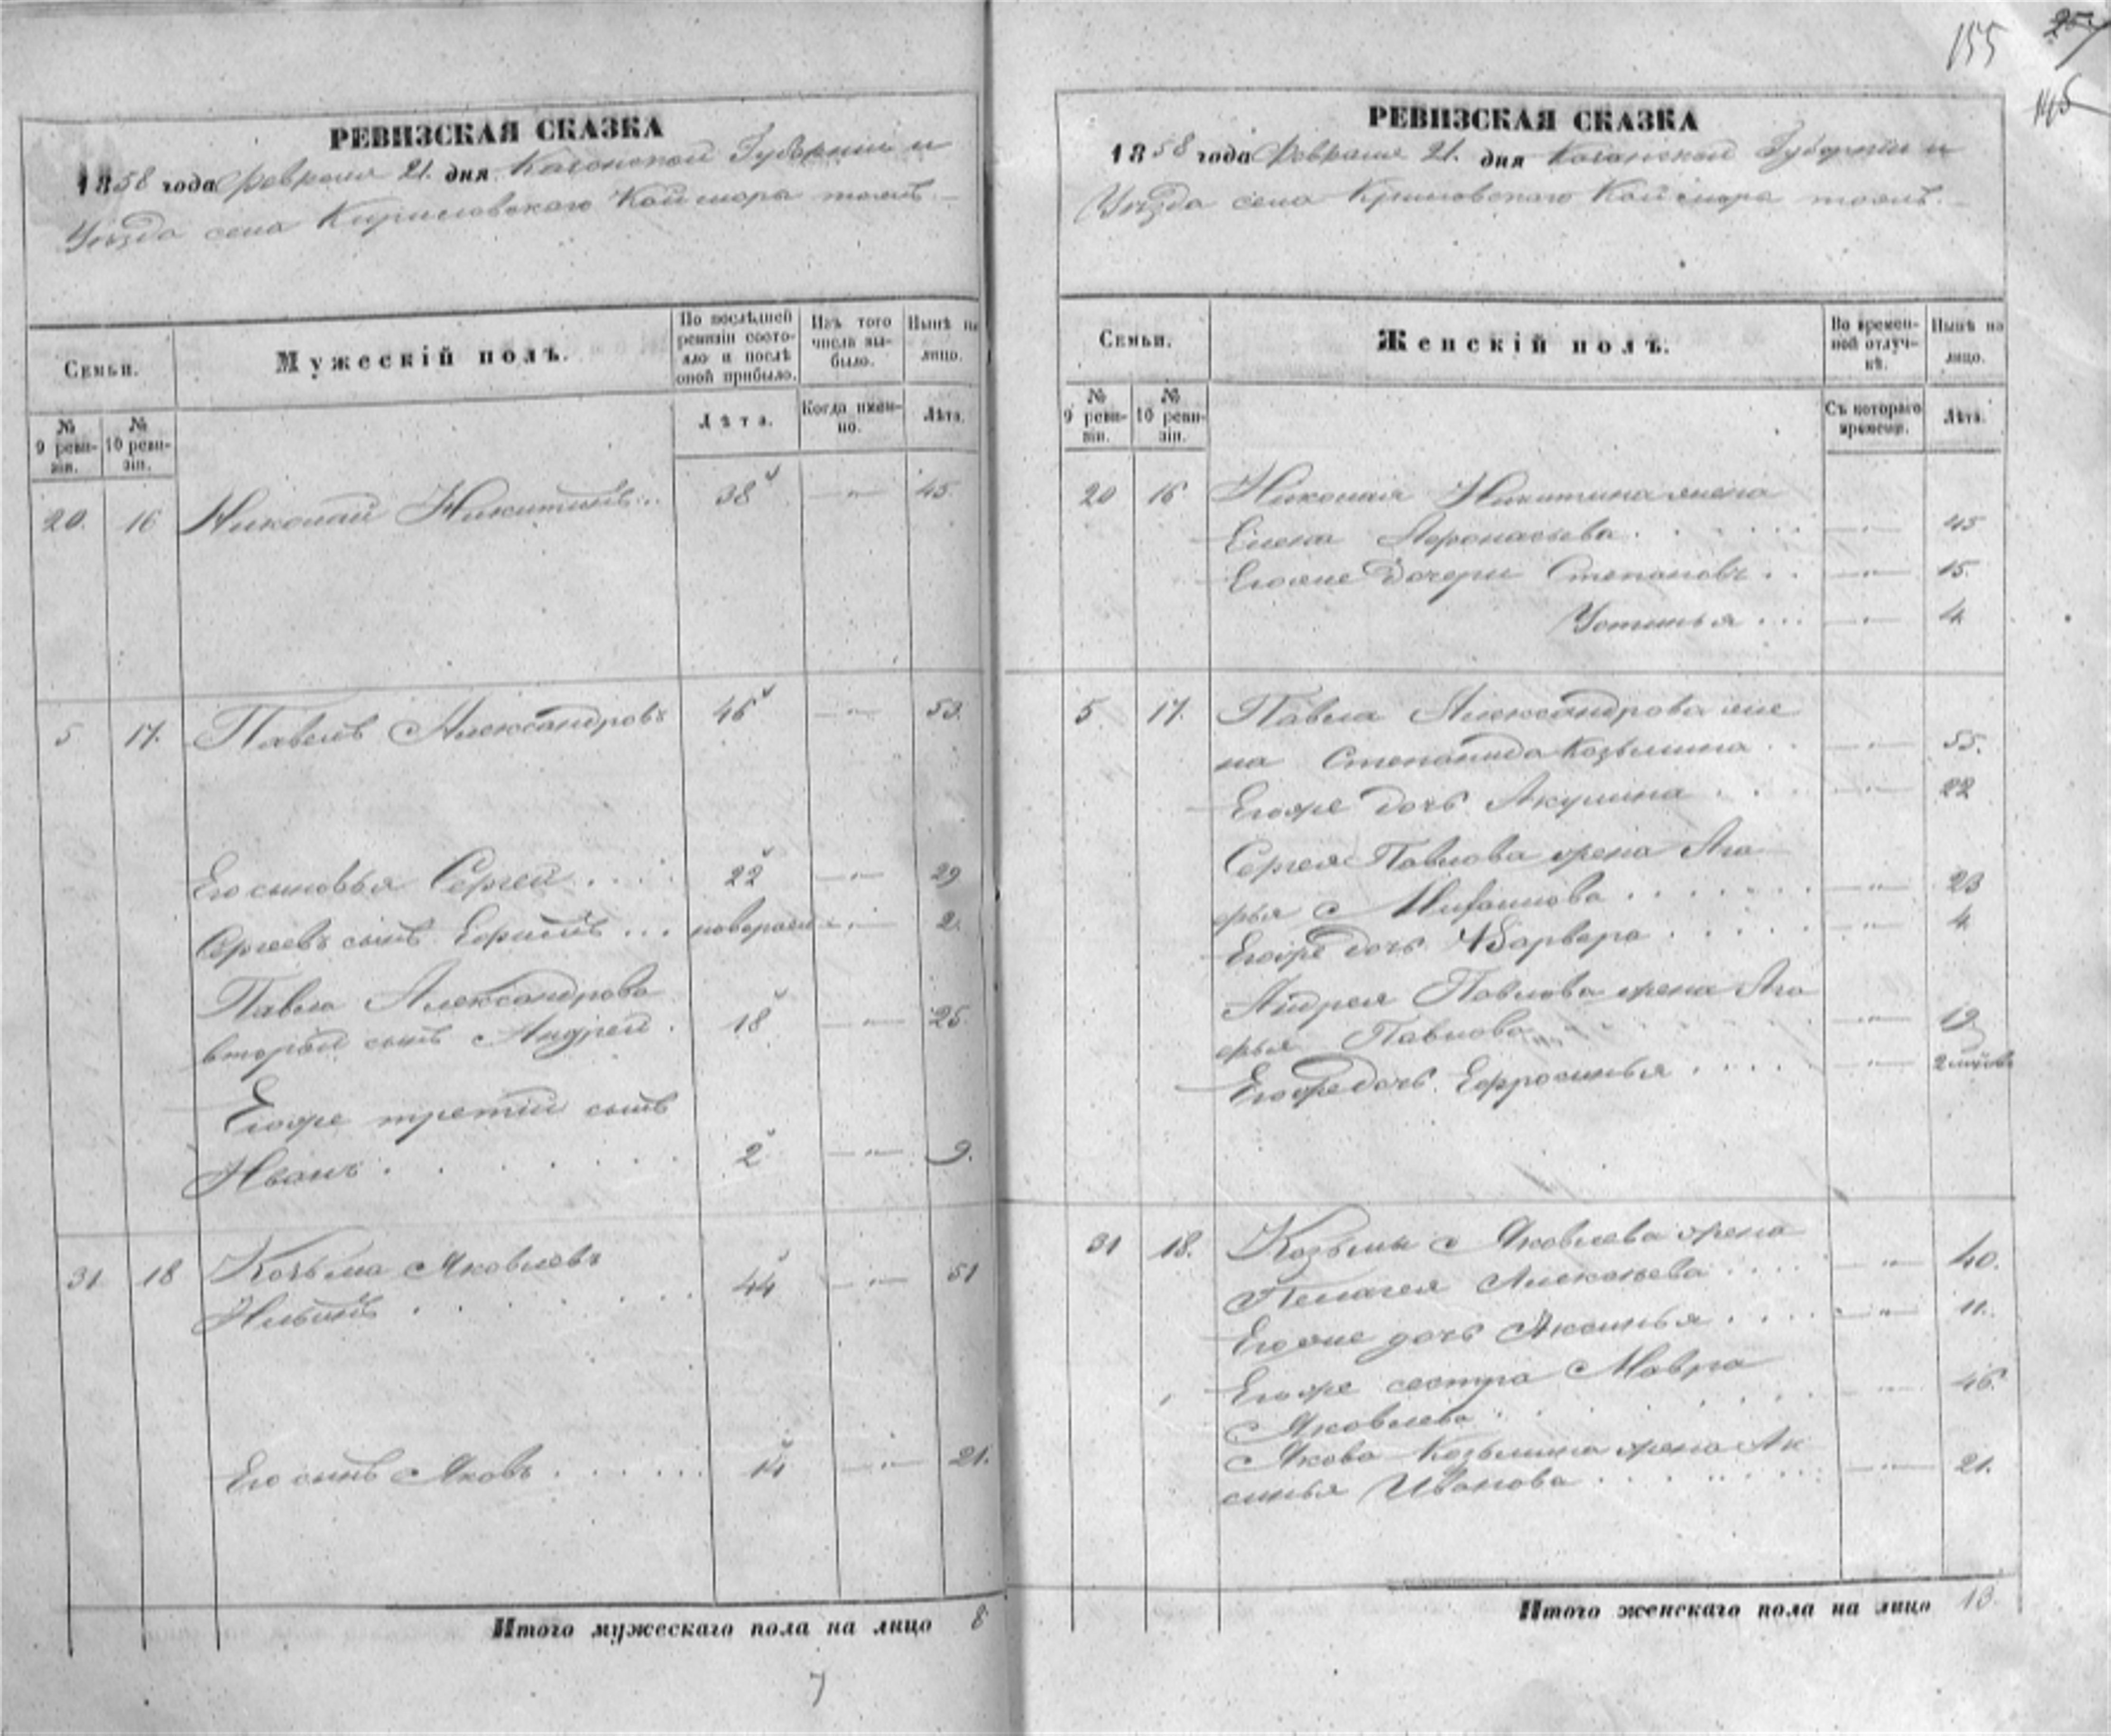 155
РЕВИЗСКАЯ СКАЗКА
1858 года Февраля 21. дня Казанской Губернiи и
Уѣзда села Кириловскаго Каймора тожъ.
Семьи.
Мужескiй полъ.
По послѣдней ревизiи состояло и послѣ оной прибыло.
Изъ того числа выбыло.
Нынѣ на лицо.
№ 9 ревизiи.
№ 10 ревизiи.
Лѣта.
Когда именно.
Лѣта.
20. 16 Николай Никитинъ 38 —"— 45.
5 17. Павелъ Александровъ 46 —"— 53.
Его сыновья Сергей . . . . 22 —"— 29
Сергеевъ сынъ Ефимъ . . . —"— 2.
Павла Александрова
вторый сынъ Андрей . 18 —"— 25.
Егоже третiй сынъ
Иванъ . . . . . . . 2 —"— 9.
31 18 Козьма Яковлевъ
Ильинъ . . . . 44 —"— 51
Его сынъ Яковъ . . . . . . 14 —"— 21.
Итого мужескаго пола на лицо 8
7
РЕВИЗСКАЯ СКАЗКА
1858 года Февраля 21. дня Казанской Губернiи и
Уѣзда села Каймора тожъ.
Семьи.
Женскiй полъ.
Во временной отлучкѣ.
Нынѣ на лицо.
№ 9 ревизiи.
№ 10 ревизiи.
Съ котораго времени.
Лѣта.
20 16 Николая Никитина жена
Елена Афонасьева . . . . . . —"— 45
Егоже дочери Степановъ . . —"— 15.
Устинья . . . —"— 4
5 17. Павла Александрова же
на Степанида Козьмина . . —"— 55.
Егоже дочь Акулина . . . —"— 22
Сергея Павлова жена Ага
фья . . . . . . . —"— 23
Егоже дочь Варвара . . . . . —"— 4
Андрея Павлова жена Ага
фья Павлова —"— 19
Егоже дочь Ефросинья . . . . —"—
31 18. Козьмы Яковлева жена
Пелагея Алексеева . . . . —"— 40.
Егоже дочь Аксинья . . . . —"— 11.
Егоже сестра Мавра
Яковлева . . . . . . . —"— 46.
Якова Козьмина жена Ак
синья Иванова . . . . . . . —"— 21.
Итого женскаго пола на лицо 13